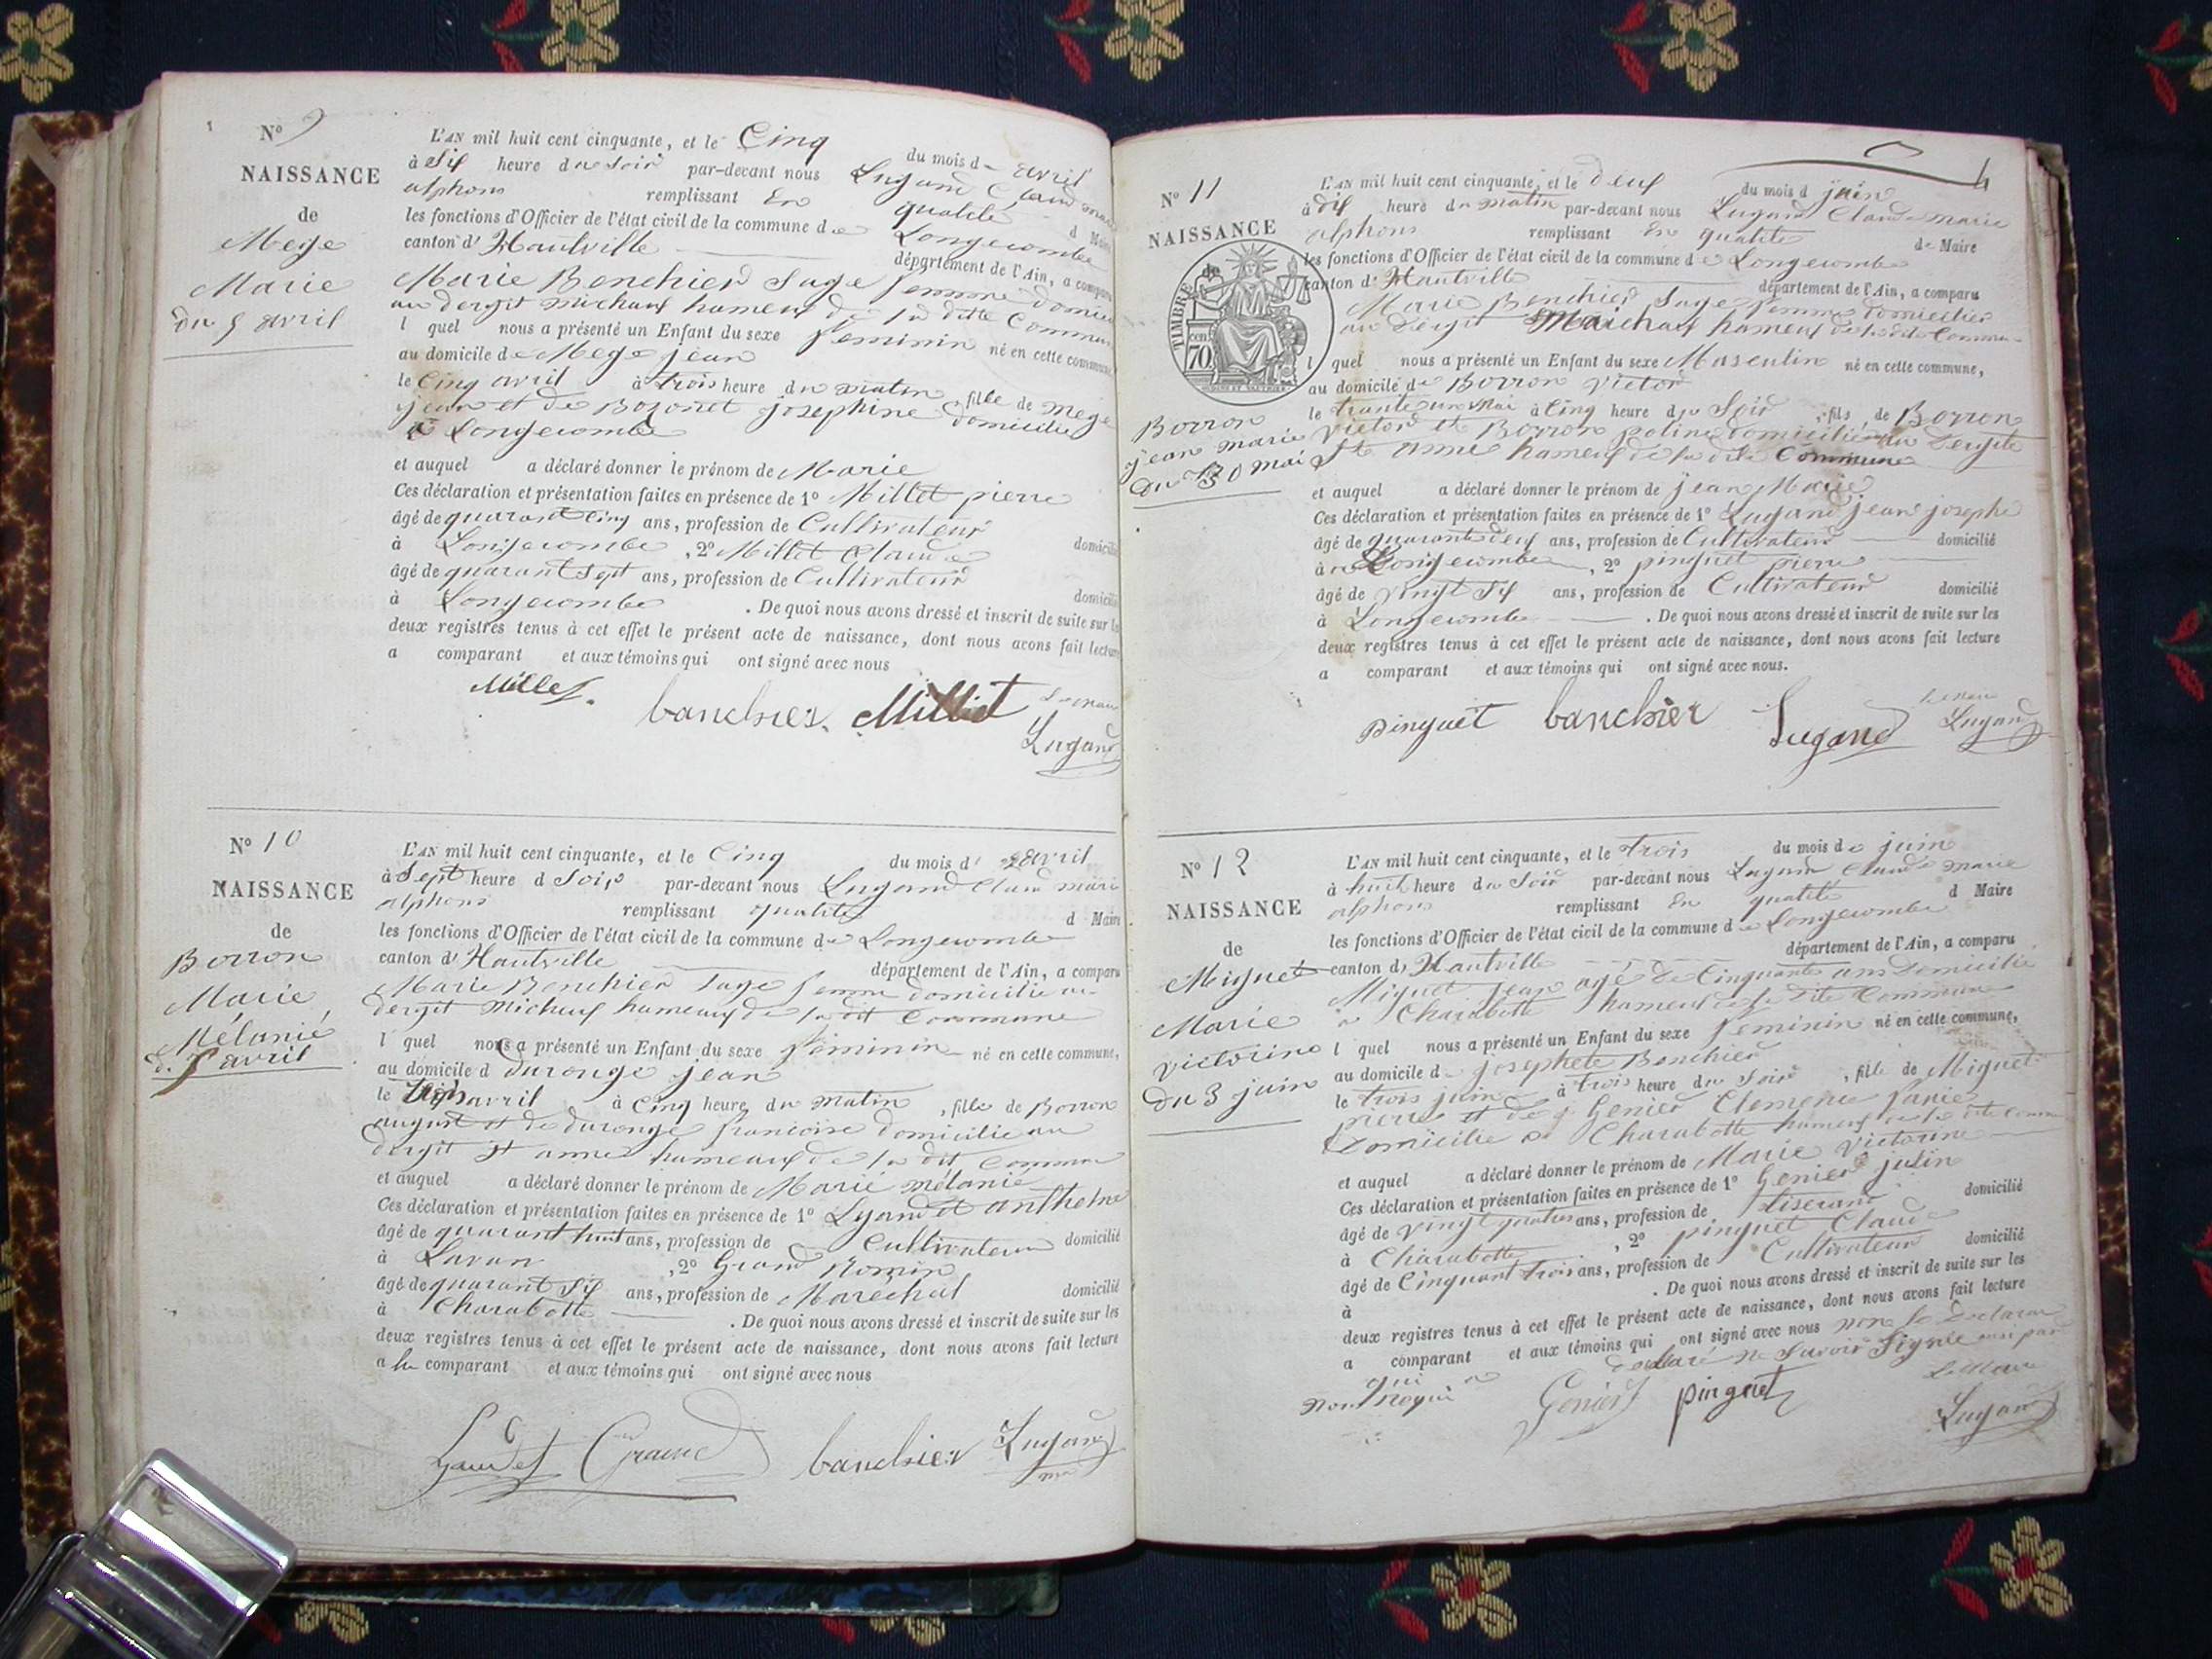 Nº 9
NAISSANCE
de
Mege
Marie
du 5 avril
L'AN mil huit cent cinquante, et le Cinq du mois d avril
à Sif heure du Soir par-devant nous Lugand Claud marie
alphons remplissant En qualité d Maire
les fonctions d'Officier de l'état civil de la commune de Longecombe
canton d' Hautville département de l'Ain, a comparu
Marie Benchier Sage femme domici
au dergit michauf hameuf de la ditte Commun
l quel nous a présenté un Enfant du sexe feminin né en cette commune,
au domicile de Mege jean
le Cinq avril à trois heure du matin, fille de Mege
jean et de Bozonet josephine domicilie
à Longecombe
et auquel a déclaré donner le prénom de Marie
Ces déclaration et présentation faites en présence de 1º Millet pierre
âgé de quarant Cinq ans, profession de Cultivateur domicilié
à Longecombe, 2º Millet Claude
âgé de quarant Sept ans, profession de Cultivateur domicilié
à Longecombe. De quoi nous avons dressé et inscrit de suite sur les
deux registres tenus à cet effet le présent acte de naissance, dont nous avons fait lecture
a comparant et aux témoins qui ont signé avec nous
Millet. banchier. Millet
Lugand
Nº 10
NAISSANCE
de
Borron
Marie
Mélanié
d. 5 avril
L'AN mil huit cent cinquante, et le Cinq du mois d' avril
à Sept heure d Soir par-devant nous Lugand Claud marie
alphons remplissant qualité d Maire
les fonctions d'Officier de l'état civil de la commune de Longecombe
canton d' Hautville département de l'Ain, a comparu
Marie Benchier Sage femme domicilie au
dergit Michauf hameauf de la dit Commune
l quel nous a présenté un Enfant du sexe féminin né en cette commune,
au domicile d durouge jean
le avril à Cinq heure du matin, fille de Borron
august et de durouge francoise domicilie au
dergit St anne hameauf de la dit Commun
et auquel a déclaré donner le prénom de Marie mélanie
Ces déclaration et présentation faites en présence de 1º Lyaudet anthelme
âgé de quarant huit ans, profession de Cultivateur domicilié
à Lavan, 2º Grand Romin
âgé de quarant Sif ans, profession de Maréchal domicilié
à Charabotte. De quoi nous avons dressé et inscrit de suite sur les
deux registres tenus à cet effet le présent acte de naissance, dont nous avons fait lecture
a la comparant et aux témoins qui ont signé avec nous
Lyaudet Grand banchier Lugand
Nº 11
NAISSANCE
de
TIMBRE
70 cen
Borron
jean marie
du 30 mai
L'AN mil huit cent cinquante, et le deuf du mois d juin
à dif heure du matin par-devant nous Lugand Claude marie
alphons remplissant En qualité de Maire
les fonctions d'Officier de l'état civil de la commune de Longecombe
canton d' Hautville département de l'Ain, a comparu
Marie Benchier Sage femme domicilier
au dergit Maichauf hameuf de la dite Commu
l quel nous a présenté un Enfant du sexe Masculin né en cette commune,
au domicile de Borron Victor
le trante un mai à Cinq heure du Soir, fils de Borron
Victor et Borron poline domicilié au dergite
Ste anne hameuf de la dite Commune
et auquel a déclaré donner le prénom de jean Marie
Ces déclaration et présentation faites en présence de 1º Lugand jean josephe
âgé de quarant deuf ans, profession de Cultivateur domicilié
à Longecombe, 2º pinguet pierre
âgé de vingt Sif ans, profession de Cultivateur domicilié
à Longecombe. De quoi nous avons dressé et inscrit de suite sur les
deux registres tenus à cet effet le présent acte de naissance, dont nous avons fait lecture
a comparant et aux témoins qui ont signé avec nous.
Pinguet banchier Lugand Lugand
Nº 12
NAISSANCE
de
Miguet
Marie
victorine
du 3 juin
L'AN mil huit cent cinquante, et le trois du mois de juin
à huit heure du Soir par-devant nous Lugand Claude marie
alphons remplissant En qualité d Maire
les fonctions d'Officier de l'état civil de la commune de Longecombe
canton d' Hautville département de l'Ain, a comparu
Miguet jean agé de Cinquante ans Domicilie
a Charabotte hameuf de la dite Commune
l quel nous a présenté un Enfant du sexe feminin né en cette commune,
au domicile d josephete Benchier
le trois juin à trois heure du Soir, fille de Miguet
pierre et de Genier Clemenie
Domicilie a Charabotte hameuf de la dite comm
et auquel a déclaré donner le prénom de Marie Victorine
Ces déclaration et présentation faites en présence de 1º Genier julin
âgé de vingt quatre ans, profession de tiserand domicilié
à Charabotte, 2º pinguet Claude
âgé de Cinquant trois ans, profession de Cultivateur domicilié
à . De quoi nous avons dressé et inscrit de suite sur les
deux registres tenus à cet effet le présent acte de naissance, dont nous avons fait lecture
a comparant et aux témoins qui ont signé avec nous non le declaran
declaré ne Savoir Signée
Genier pinguet Le Maire
Lugand